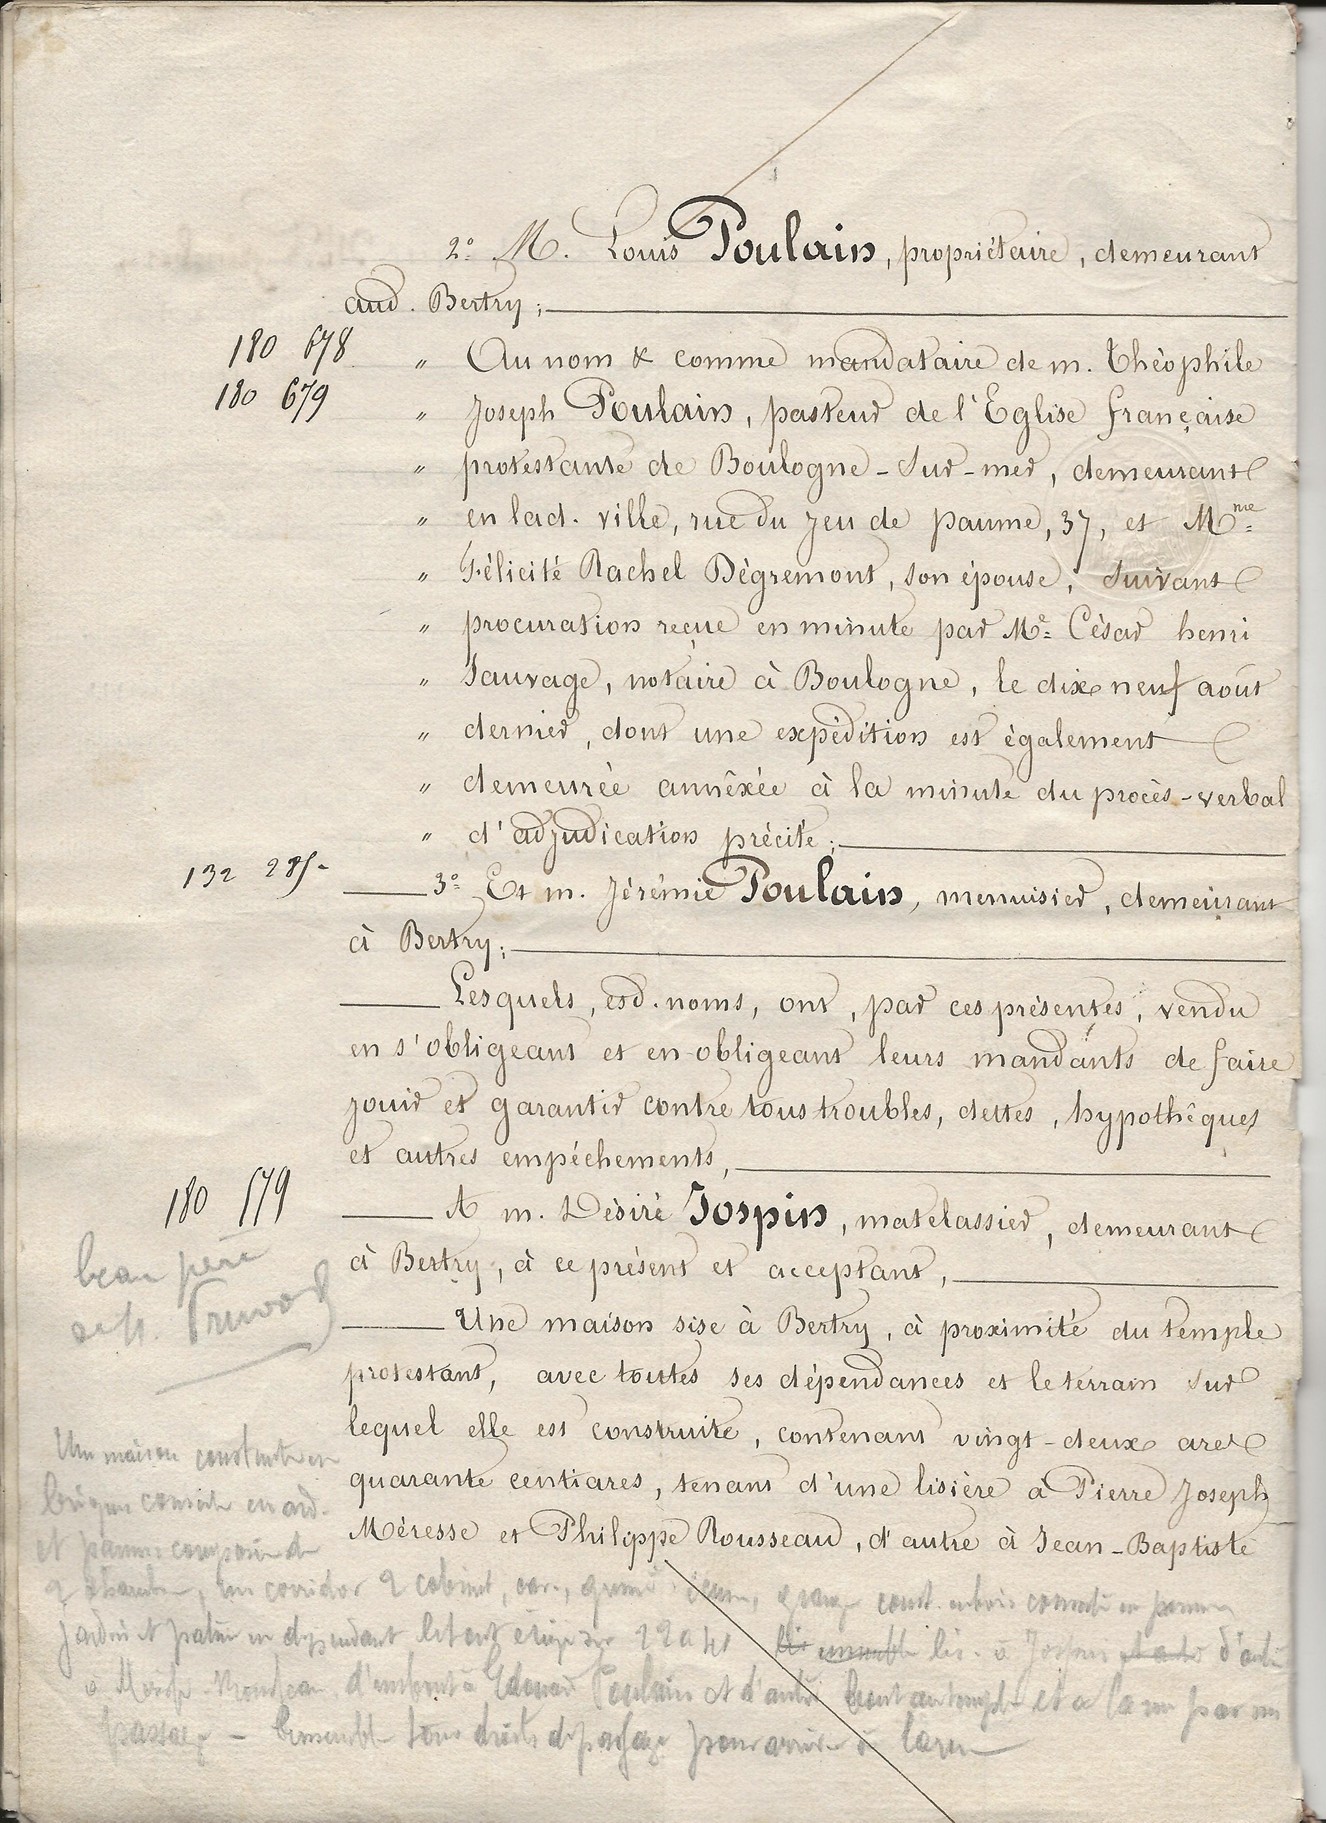 2° M. Louis Poulain, propriétaire, demeurant
aud. Bertry;
180 678 " Au nom & comme mandataire de m. Théophile
180 679 " Joseph Poulain, pasteur de l'Eglise française
" protestante de Boulogne-sur-mer, demeurant
" en lad. ville, rue du jeu de paume, 37, et Mme
" Félicité Rachel Dégremont, son épouse, suivant
" procuration reçue en minute par Me César henri
" Sauvage, notaire à Boulogne, le dix neuf août
" dernier, dont une expédition est également
" demeurée annéxée à la minute du procès-verbal
" d'adjudication précité;
132 285 3° Et m. Jérémie Poulain, menuisier, demeurant
à Bertry;
Lesquels, esd. noms, ont, par ces présentes, vendu
en s'obligeant et en obligeant leurs mandants de faire
jouir et garantir contre tous troubles, dettes, hypothêques
et autres empéchements,
180 579 A m. Désiré Jospin, matelassier, demeurant
à Bertry, à ce présent et acceptant,
beau père
de M. Pruvot
Une maison sise à Bertry, à proximité du temple
protestant, avec toutes ses dépendances et le terrain sur
lequel elle est construite, contenant vingt-deux ares
quarante centiares, tenant d'une lisière à Pierre Joseph
Méresse et Philippe Rousseau, d'autre à Jean-Baptiste
Une maison construite en
briques couverte en ard.
et pannes composée de
2 chambres, un corridor 2 cabinet, cave, grenier, grange const. en bois couverte en pannes
jardin et pature en dépendant le tout érigé sur 22 a 40 lis. à Jospin d'autre
à d'un bout à Edouard Poulain et d'autre bout au temple et à la rue par un
passage - Ensemble tous droits de passage pour arriver à la rue